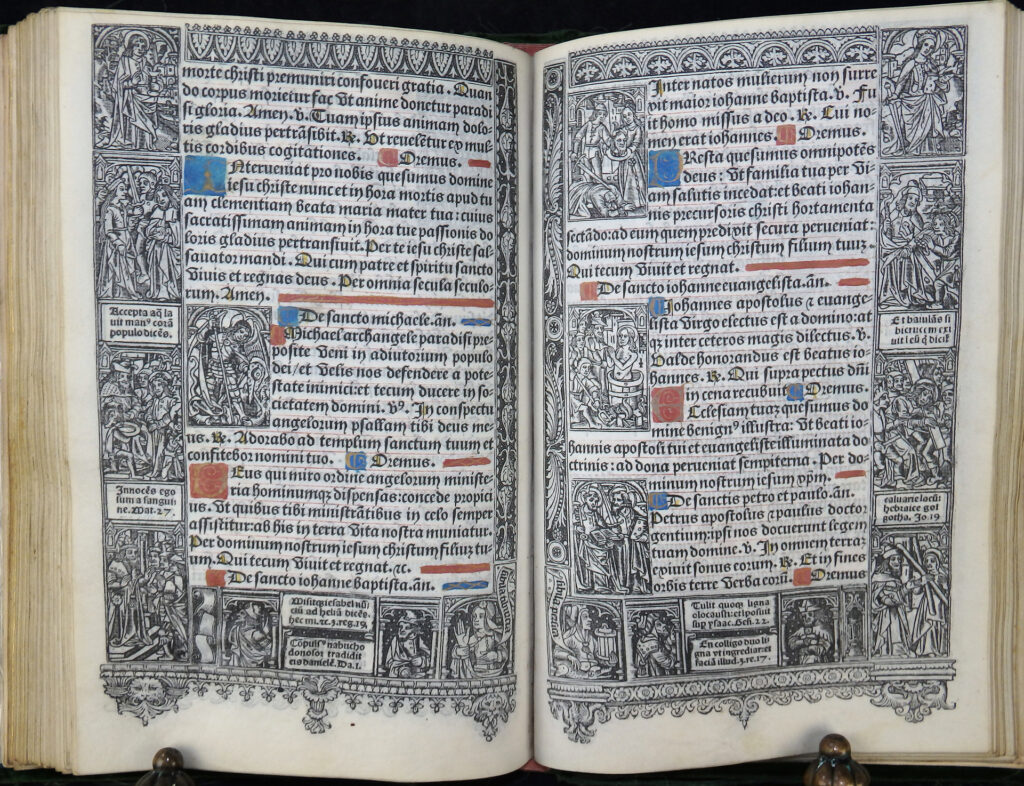 morte christi premuniri confoueri gratia. Quan
do corpus morietur fac Vt anime donetur paradi
si gloria. Amen. v. Tuam ipsius animam dolo-
ris gladius pertrãsibit. ℟. Vt reuelẽtur ex mul
tis cordibus cogitationes. Oremus.
INterueniat pro nobis quesumus domine
iesu christe nunc et in hora mortis apud tu
am clementiam beata maria mater tua: cuius
sacratissimam animam in hora tue passionis do
loris gladius pertransiuit. Per te iesu christe sal
uator mandi. Qui cum patre et spiritu sancto
Viuis et regnas deus. Per omnia secula seculo-
rum. Amen.
De sancto michaele. añ.
Michael archangele paradisi pre-
posite Veni in adiutorium populo
dei/ et Velis nos defendere a pote-
state inimici: et tecum ducere in so-
cietatem domini. vꝰ. In conspectu
angelorum psallam tibi deus me-
us. ℟. Adorabo ad templum sanctum tuum et
confitebor nomini tuo. Oremus.
DEus qui miro ordine angelorum ministe-
ria hominumqꝫ dispensas: concede propici
us. Vt quibus tibi ministrãtibus in celo semper
assistitur: ab his in terra Vita nostra muniatur.
Per dominum nostrum iesum christum filiuꝫ tu-
um. Qui tecum Viuit et regnat. ⁊c.
De sancto iohanne baptista. añ.
Accepta aq̃ la
uit manꝰ corã
populo dicẽs.
Innocẽs ego
sum a sangui
ne. Mat. 27.
Misitqꝫ iesabel nũ
ciũ ad heliã dicẽs.
hec mi. ⁊c. 3. reg. 19.
nabucho
donosor tradidit
eis danielẽ. Da. 1.
Inter natos mulierum non surre
xit maior iohanne baptista. v. Fu
it homo missus a deo. ℟. Cui no-
men erat iohannes. Oremus.
PResta quesumus omnipotẽs
deus: Vt familia tua per Vi
am salutis incedat: et beati iohan-
nis precursoris christi hortamenta
sectãdo: ad eum quem predixit secura perueniat:
dominum nostrum iesum christum filium tuuꝫ.
Qui tecum Viuit et regnat.
De sancto iohanne euangelista. añ.
Iohannes apostolus ⁊ euange-
lista Virgo electus est a domino: at
qꝫ inter ceteros magis dilectus. v.
Valde honorandus est beatus io-
hannes. ℟. Qui supra pectus dñi
in cena recubuit. Oremus.
EClesiam tuaꝫ quesumus do
mine benignꝰ illustra: Vt beati io-
hannis apostoli tui et euangeliste illuminata do
ctrinis: ad dona perueniat sempiterna. Per do-
minum nostrum iesum xp̃m.
De sanctis petro et paulo. añ.
Petrus apostolus ⁊ paulus doctor
gentium: ipsi nos docuerunt legem
tuam domine. v. In omnem terraꝫ
exiuit sonus eorum. ℟. Et in fines
orbis terre Verba eorũ. Oremus
Et baiulãs si
bi crucem exi
uit
caluarie locũ
hebraice gol
gotha. Jo. 19
Tulit quoqꝫ ligna
olocausti: et iposuit
sup ysaac. Geñ. 22.
En colligo duo li
gna vt ingrediar: et
faciã illud. 3. re. 17.